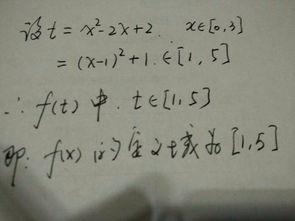 设t=x²-2x+2. x∈[0,3]
=(x-1)²+1.∈[1,5]
∴f(t)中.t∈[1,5]
即:f(x)的定义域为[1,5]